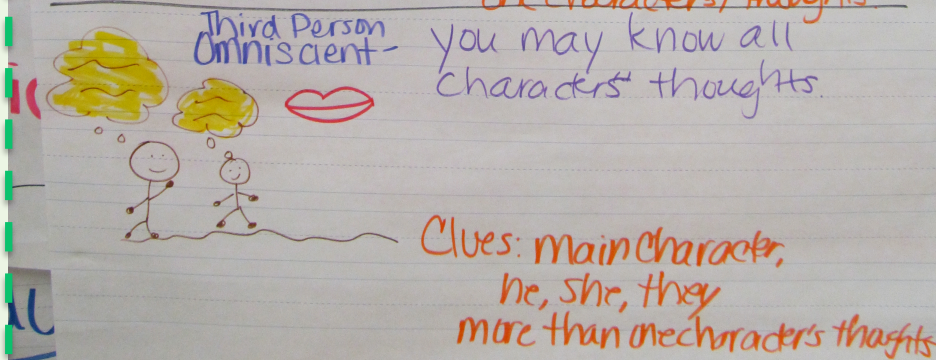 one characters/thoughts.
Third Person
Omniscient-
you may know all
characters' thoughts.
Clues: main character,
he, she, they
more than one character's thoughts